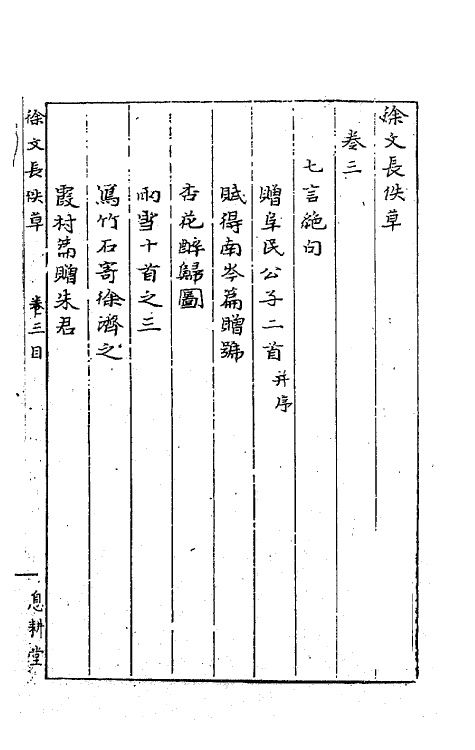 徐文長佚草
卷三
七言絶句
贈阜民公子二首并序
賦得南岑篇贈號
杏花醉歸圖
雨雪十首之三
寫竹石寄徐濟之
霞村篇贈朱君
徐文長佚草 卷三目 一 息耕堂